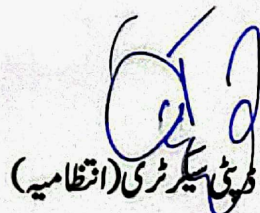 ڈپٹی سیکرٹری (انتظامیہ)